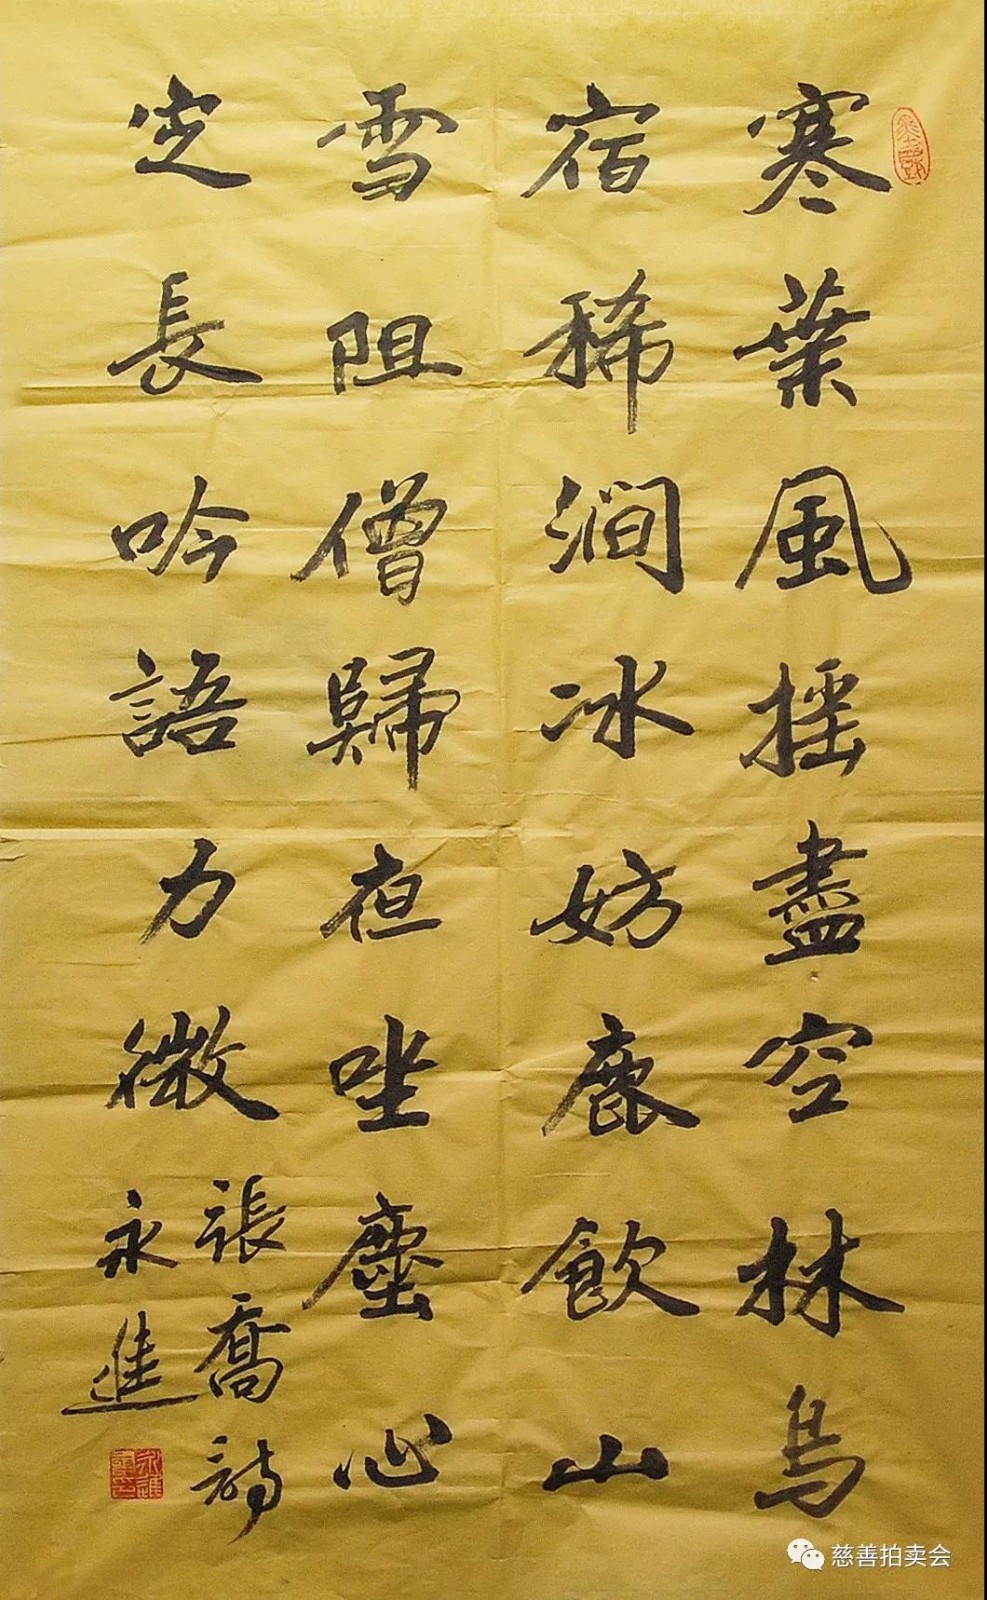 寒葉風摇盡空林鳥
宿稀澗冰妨鹿飲山
雪阻僧歸夜坐塵心
定長吟語力微
張喬詩
永進
慈善拍卖会